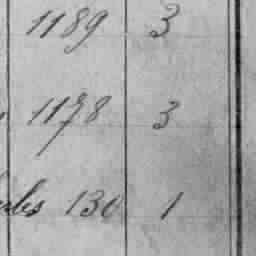 1189 3
1178 3
130 1